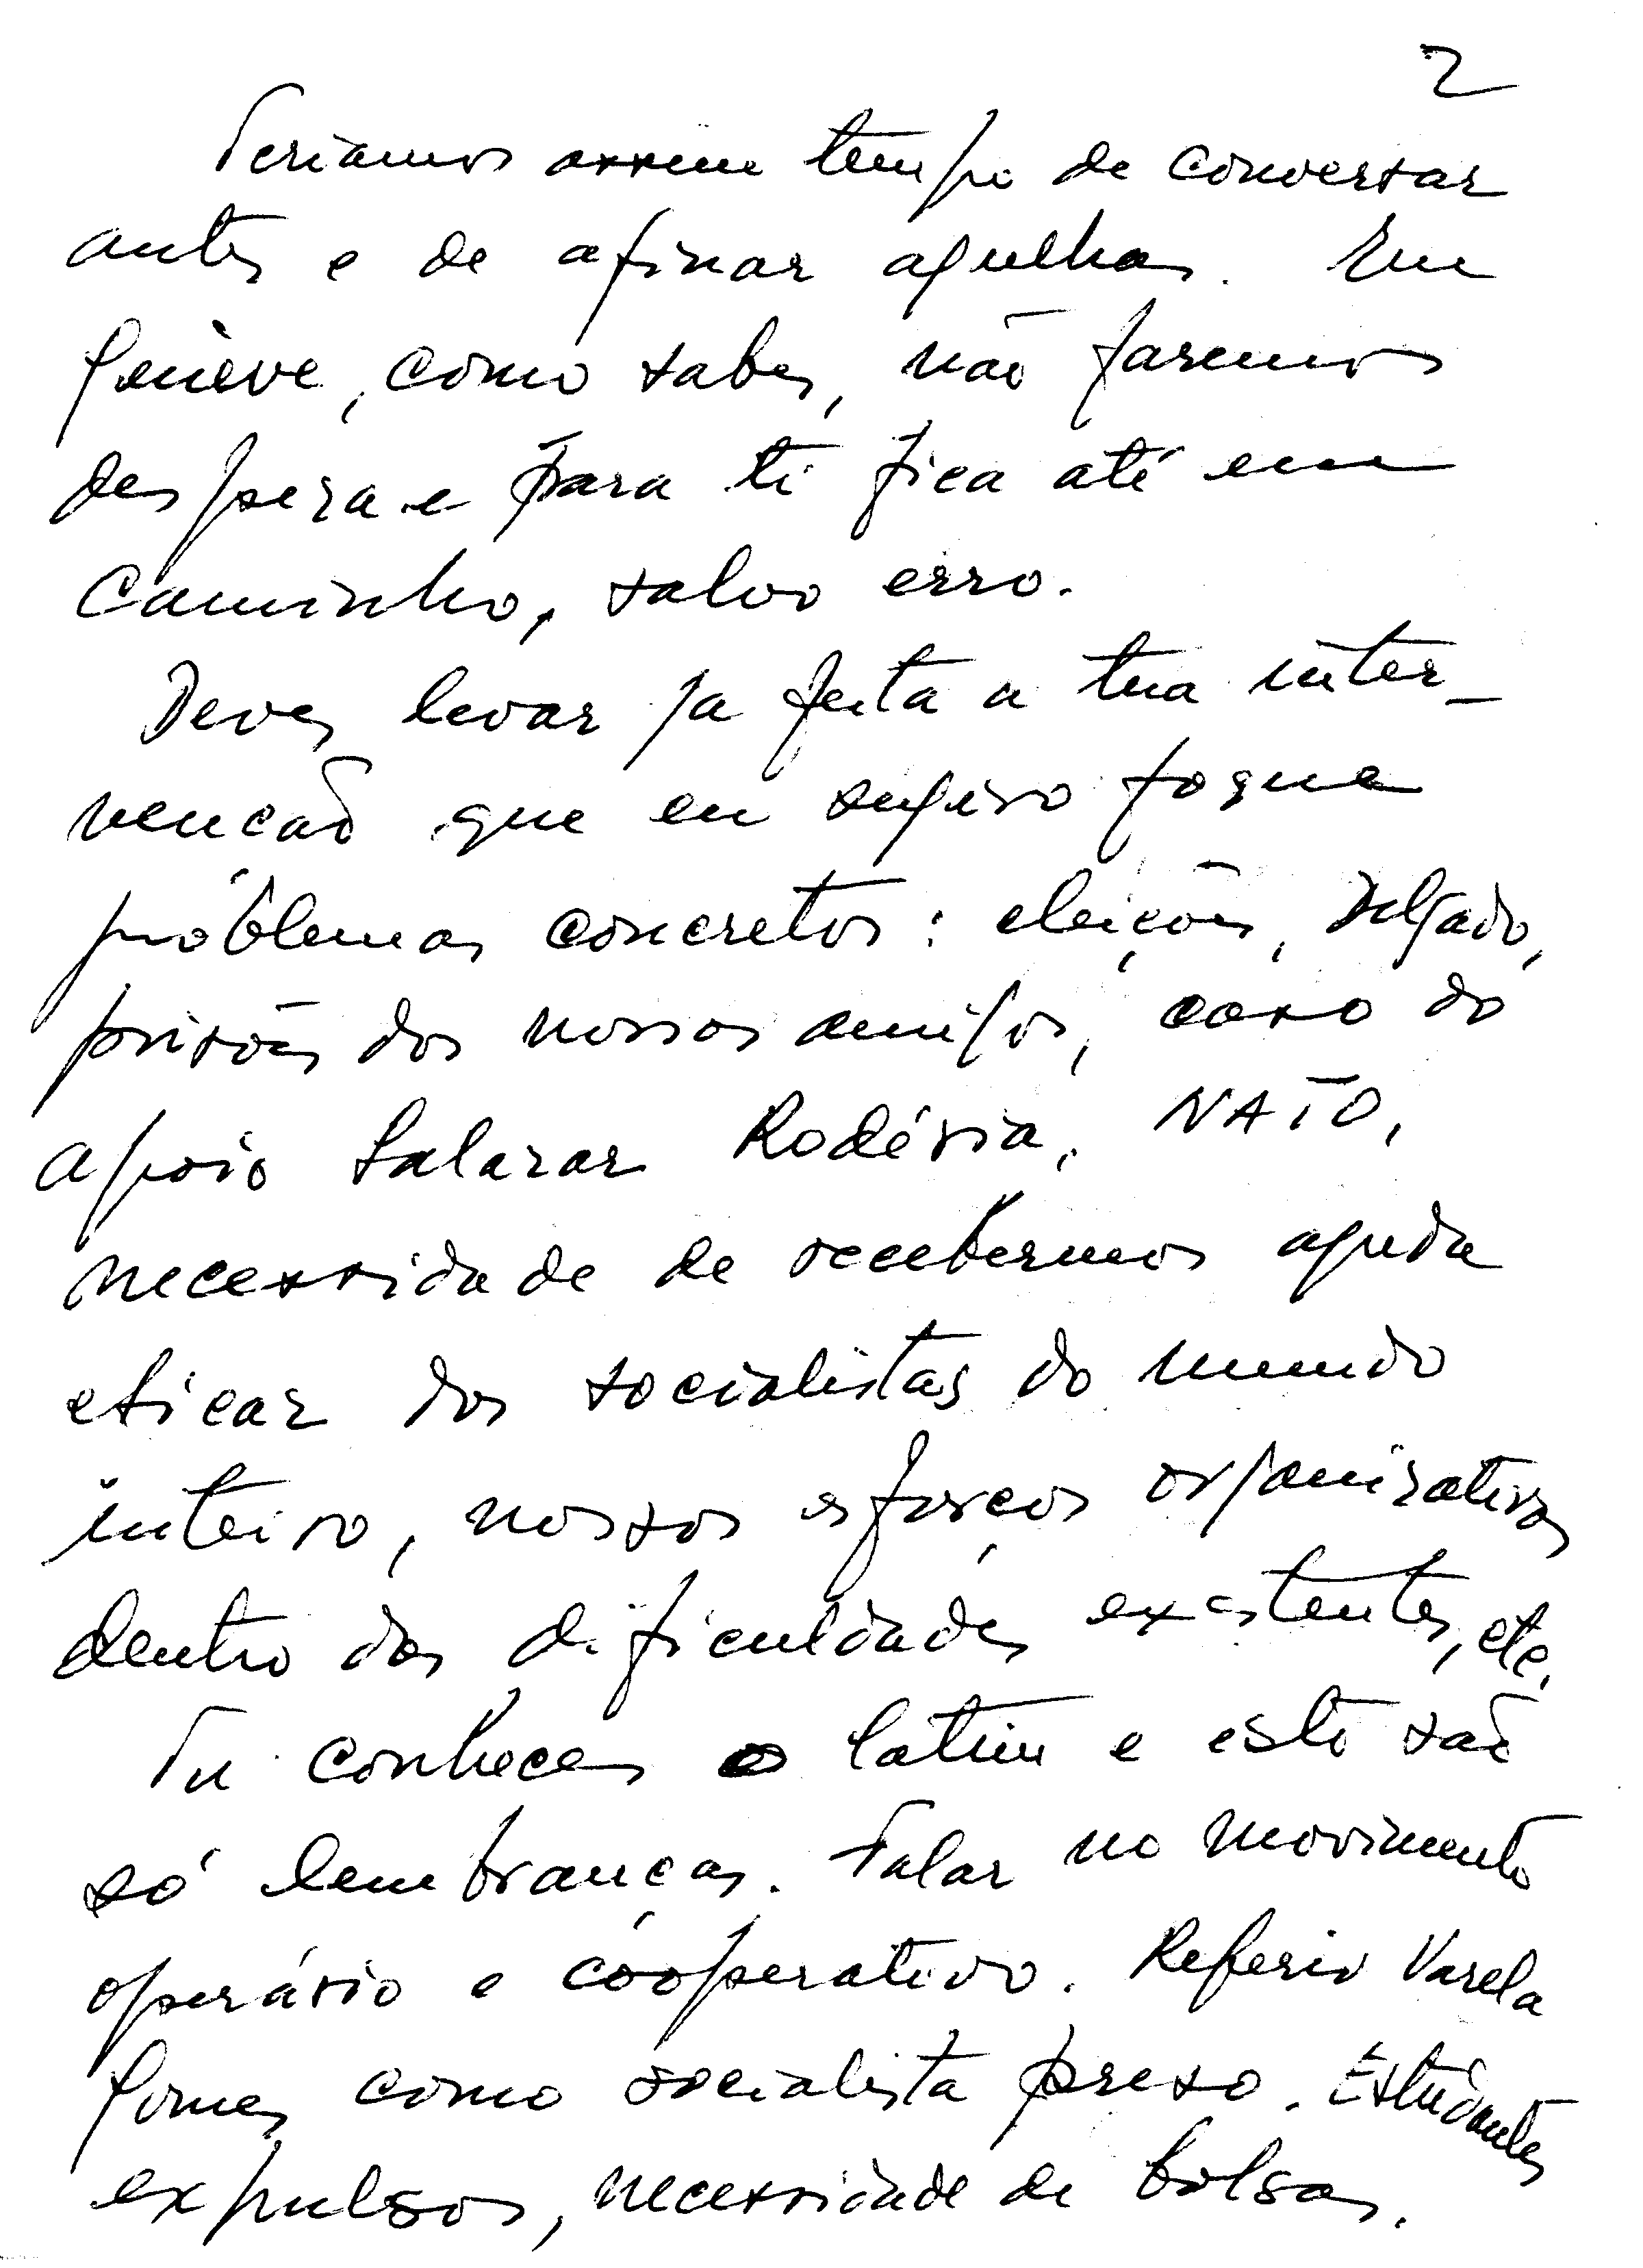 2
Teriamos assim tempo de conversar
antes e de afinar agulhas. Em
Genève, como sabes, não faremos
despesa e para ti fica até em
caminho, salvo erro.
Deves levar já feita a tua inter-
venção que eu sugiro foque
problemas concretos: eleições, Delgado,
prisões dos nossos amigos, caso do
apoio Salazar Rodésia, NATO,
necessidade de recebermos ajuda
eficaz dos socialistas do mundo
inteiro, nossos esforços organizativos
dentro das dificuldades existentes, etc.
Tu conheces o latim e isto são
só lembranças. Falar no movimento
operário e cooperativo. Referir Varela
Gomes como socialista preso. Estudantes
expulsos, necessidade de bolsas.